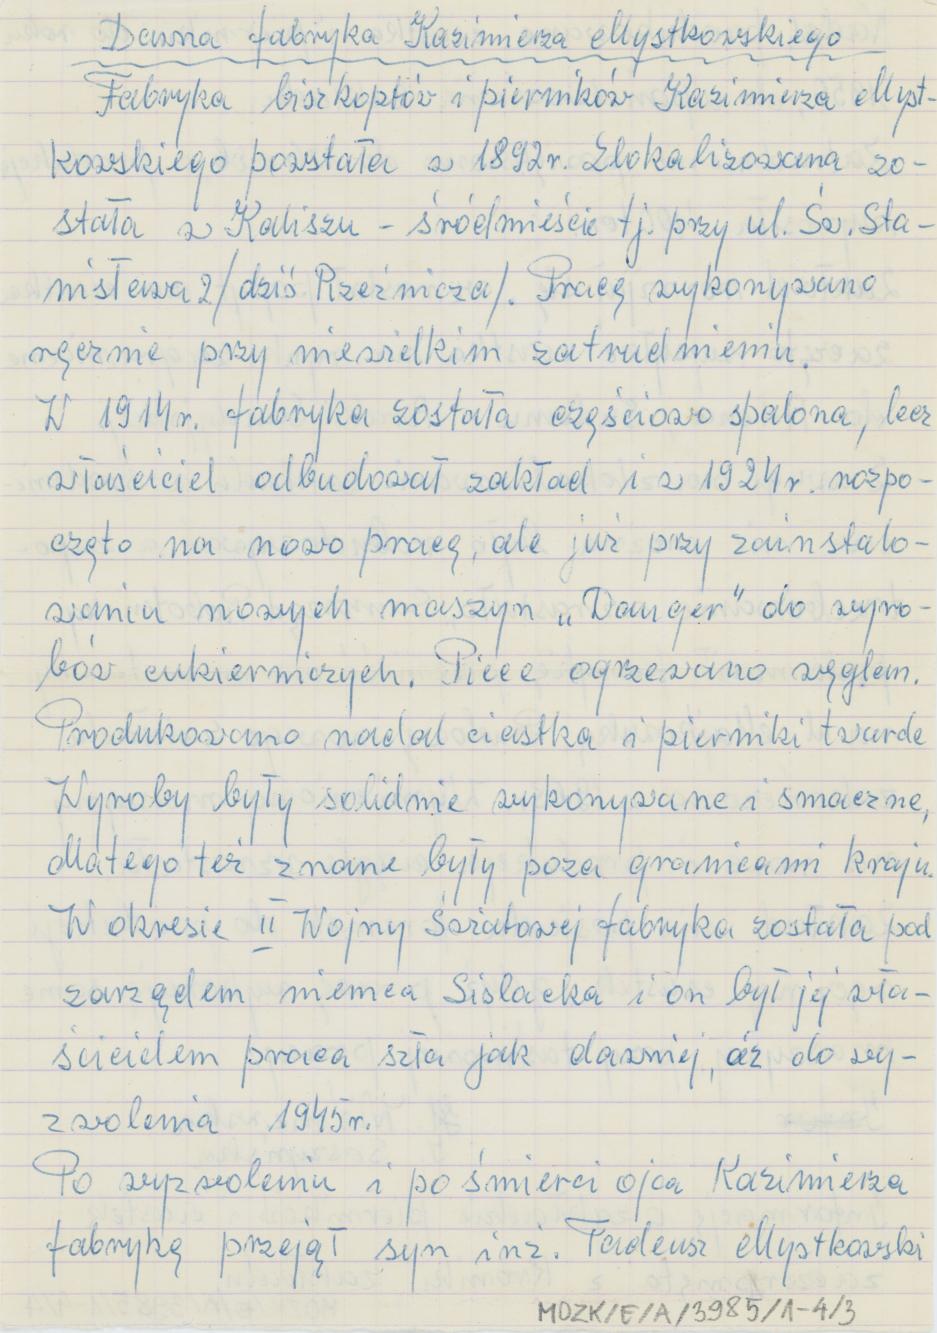 Dawna fabryka Kazimierza Mystkowskiego
Fabryka biszkoptów i pierników Kazimierza Myst-
kowskiego powstała w 1892r. Zlokalizowana zo-
stała w Kaliszu – śródmieście tj. przy ul. Św. Sta-
nisława 2/dziś Rzeźnicza/. Pracę wykonywano
ręcznie przy niewielkim zatrudnieniu.
W 1914r. fabryka została częściowo spalona, lecz
właściciel odbudował zakład i w 1924r. rozpo-
częto na nowo pracę, ale już przy zainstalo-
waniu nowych maszyn „Danger" do wyro-
bów cukierniczych. Piece ogrzewano węglem.
Produkowano nadal ciastka i pierniki twarde
Wyroby były solidnie wykonywane i smaczne,
dlatego też znane były poza granicami kraju.
W okresie II Wojny Światowej fabryka została pod
zarządem niemca Sislacka i on był jej wła-
ścicielem praca szła jak dawniej, aż do wy-
zwolenia 1945r.
Po wyzwoleniu i po śmierci ojca Kazimierza
fabrykę przejął syn inż. Tadeusz Mystkowski
MOZK/E/A/3985/1-4/3